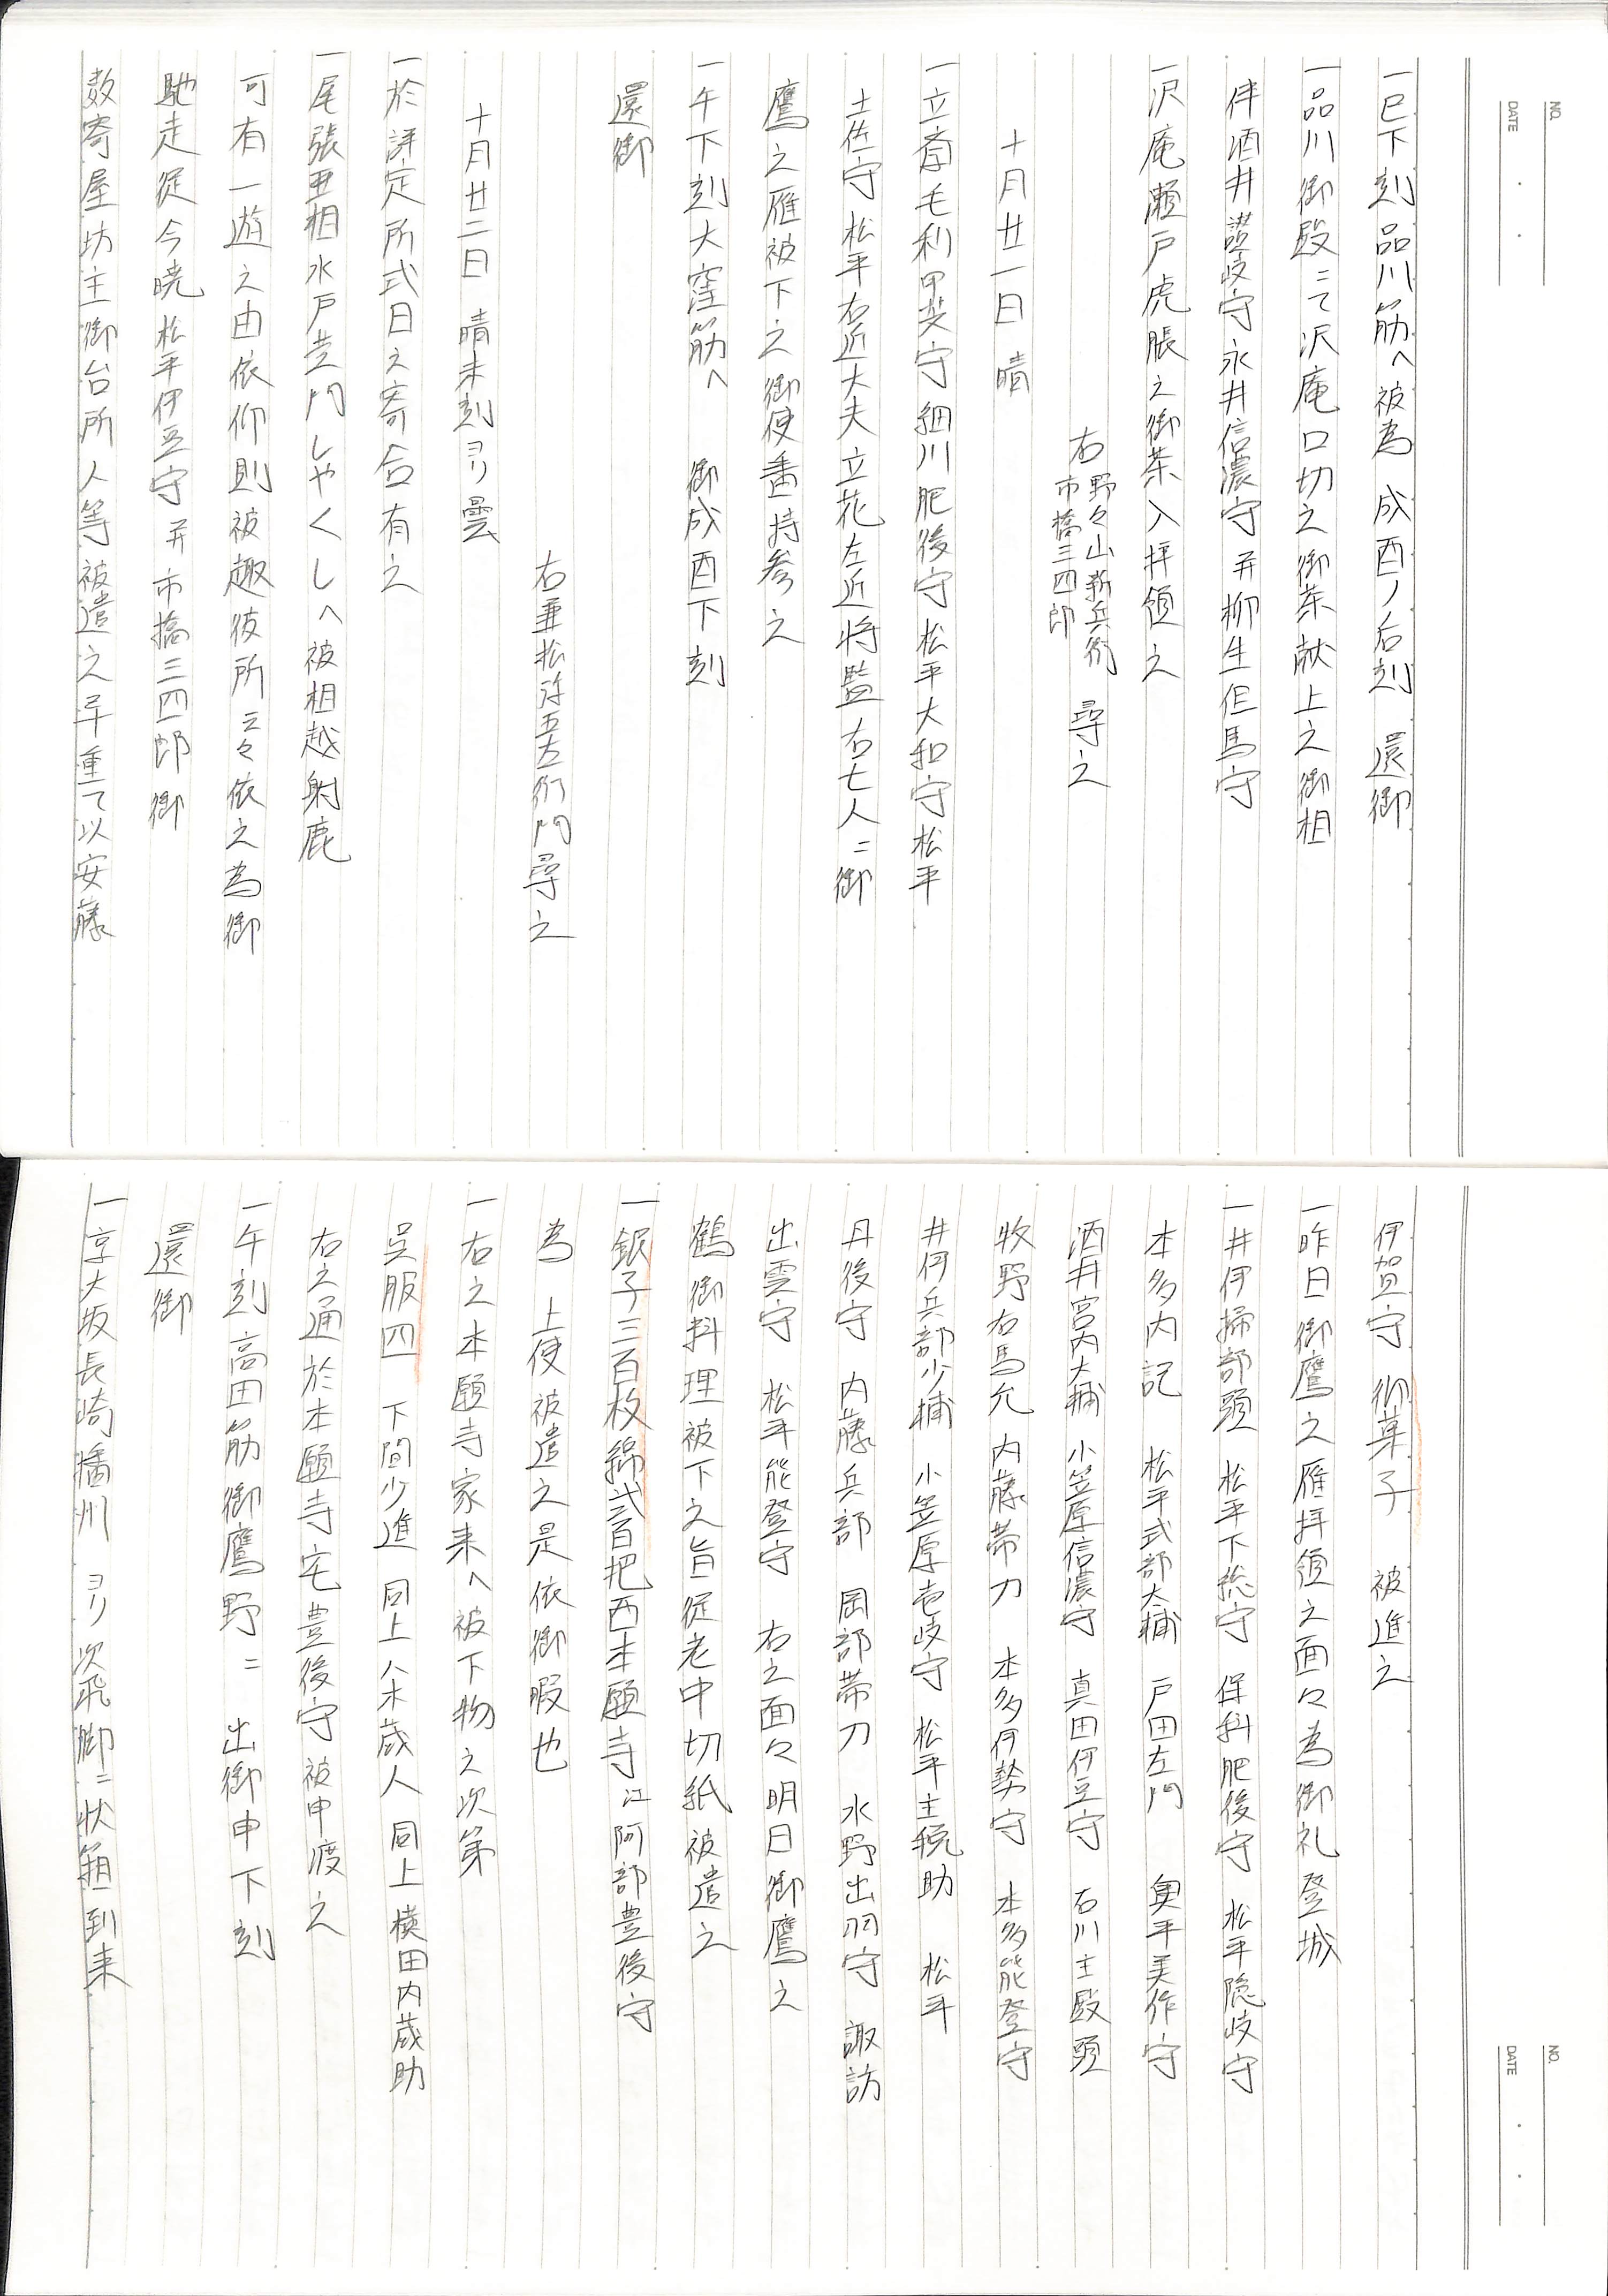 NO.
DATE
一巳下刻品川筋へ被為 成酉ノ后刻 還御
一品川御殿ニて沢庵口切之御茶献上之御相
伴酒井讃岐守永井信濃守并柳生但馬守
一沢庵瀬戸虎脹之御茶入拝領之
右 野々山新兵衛 市橋三四郎 尋之
十月廿一日 晴
一立斎毛利甲斐守細川肥後守松平大和守松平
土佐守松平右近大夫立花左近将監右七人ニ御
鷹之雁被下之御使番持参之
一午下刻大窪筋へ 御成酉下刻
還御
右兼松弥五左衛門尋之
十月廿二日 晴未刻ヨリ曇
一於評定所式日之寄合有之
一尾張亜相水戸黄門しやくしへ被相越射鹿
可有一遊之由依仰則被趣彼所云々依之為御
馳走従今暁松平伊豆守并市橋三四郎御
数寄屋坊主御台所人等被遣之早重て以安藤
NO.
DATE
伊賀守御菓子 被進之
一昨日御鷹之雁拝領之面々為御礼登城
一井伊掃部頭 松平下総守 保科肥後守 松平隠岐守
本多内記 松平式部大輔 戸田左門 奥平美作守
酒井宮内大輔 小笠原信濃守 真田伊豆守 石川主殿頭
牧野右馬允 内藤帯刀 本多伊勢守 本多能登守
井伊兵部少輔 小笠原壱岐守 松平主税助 松平
丹後守 内藤兵部 岡部帯刀 水野出羽守 諏訪
出雲守 松平能登守 右之面々明日御鷹之
鶴御料理被下之旨従老中切紙被遣之
一銀子三百枚綿弐百把西本願寺江阿部豊後守
為 上使被遣之是依御暇也
一右之本願寺家来へ被下物之次第
呉服四 下間少進 同上八木蔵人 同上横田内蔵助
右之通於本願寺宅豊後守被申渡之
一午刻高田筋御鷹野ニ 出御申下刻
還御
一京大坂長崎播州ヨリ次飛脚ニ状箱到来